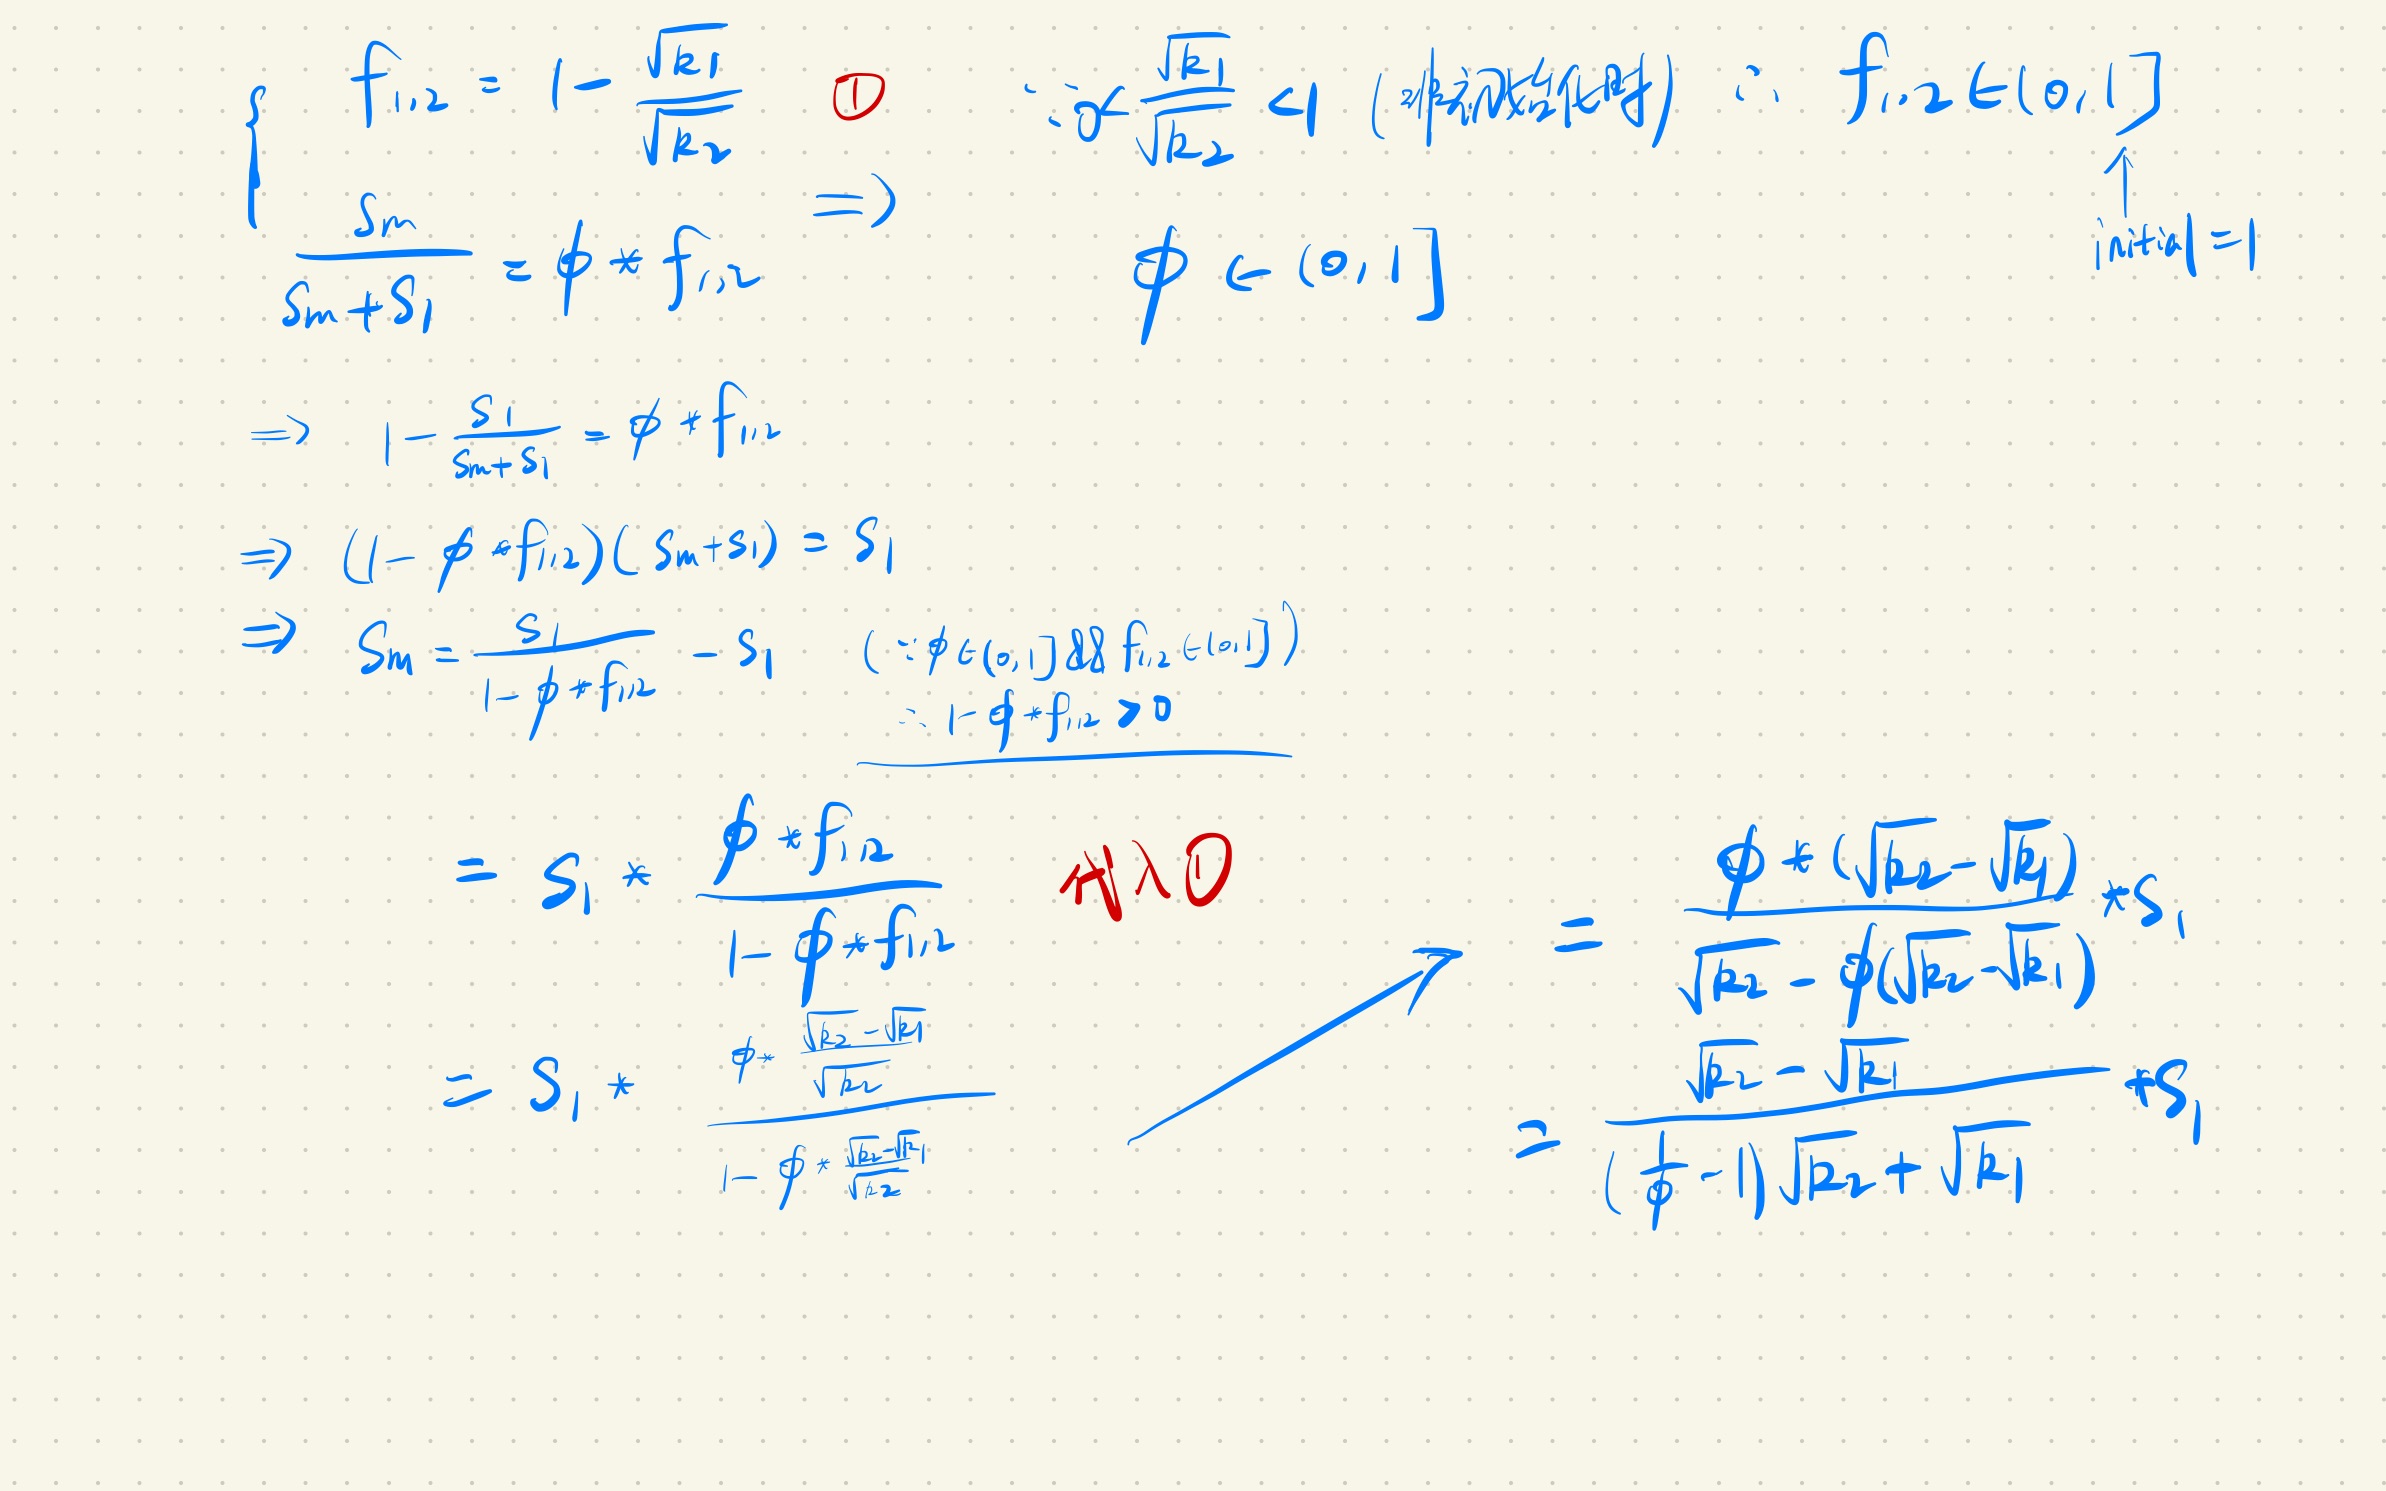 f₁,₂ = 1 - √k₁/√k₂ ① ∵ 0 < √k₁/√k₂ < 1 (非初始化时) ∴ f₁,₂ ∈ (0,1]
Sm/(Sm+S₁) = φ * f₁,₂ ⇒ φ ∈ (0,1] ↑ initial=1
⇒ 1 - S₁/(Sm+S₁) = φ * f₁,₂
⇒ (1 - φ * f₁,₂)(Sm+S₁) = S₁
⇒ Sm = S₁/(1 - φ * f₁,₂) - S₁ (∵ φ ∈ (0,1] && f₁,₂ ∈ (0,1])
∴ 1 - φ * f₁,₂ > 0
= S₁ * (φ * f₁,₂)/(1 - φ * f₁,₂) 代入①
= S₁ * (φ * (√k₂ - √k₁)/√k₂)/(1 - φ * (√k₂ - √k₁)/√k₂)
= (φ * (√k₂ - √k₁))/(√k₂ - φ(√k₂ - √k₁)) * S₁
= (√k₂ - √k₁)/((1/φ - 1)√k₂ + √k₁) * S₁